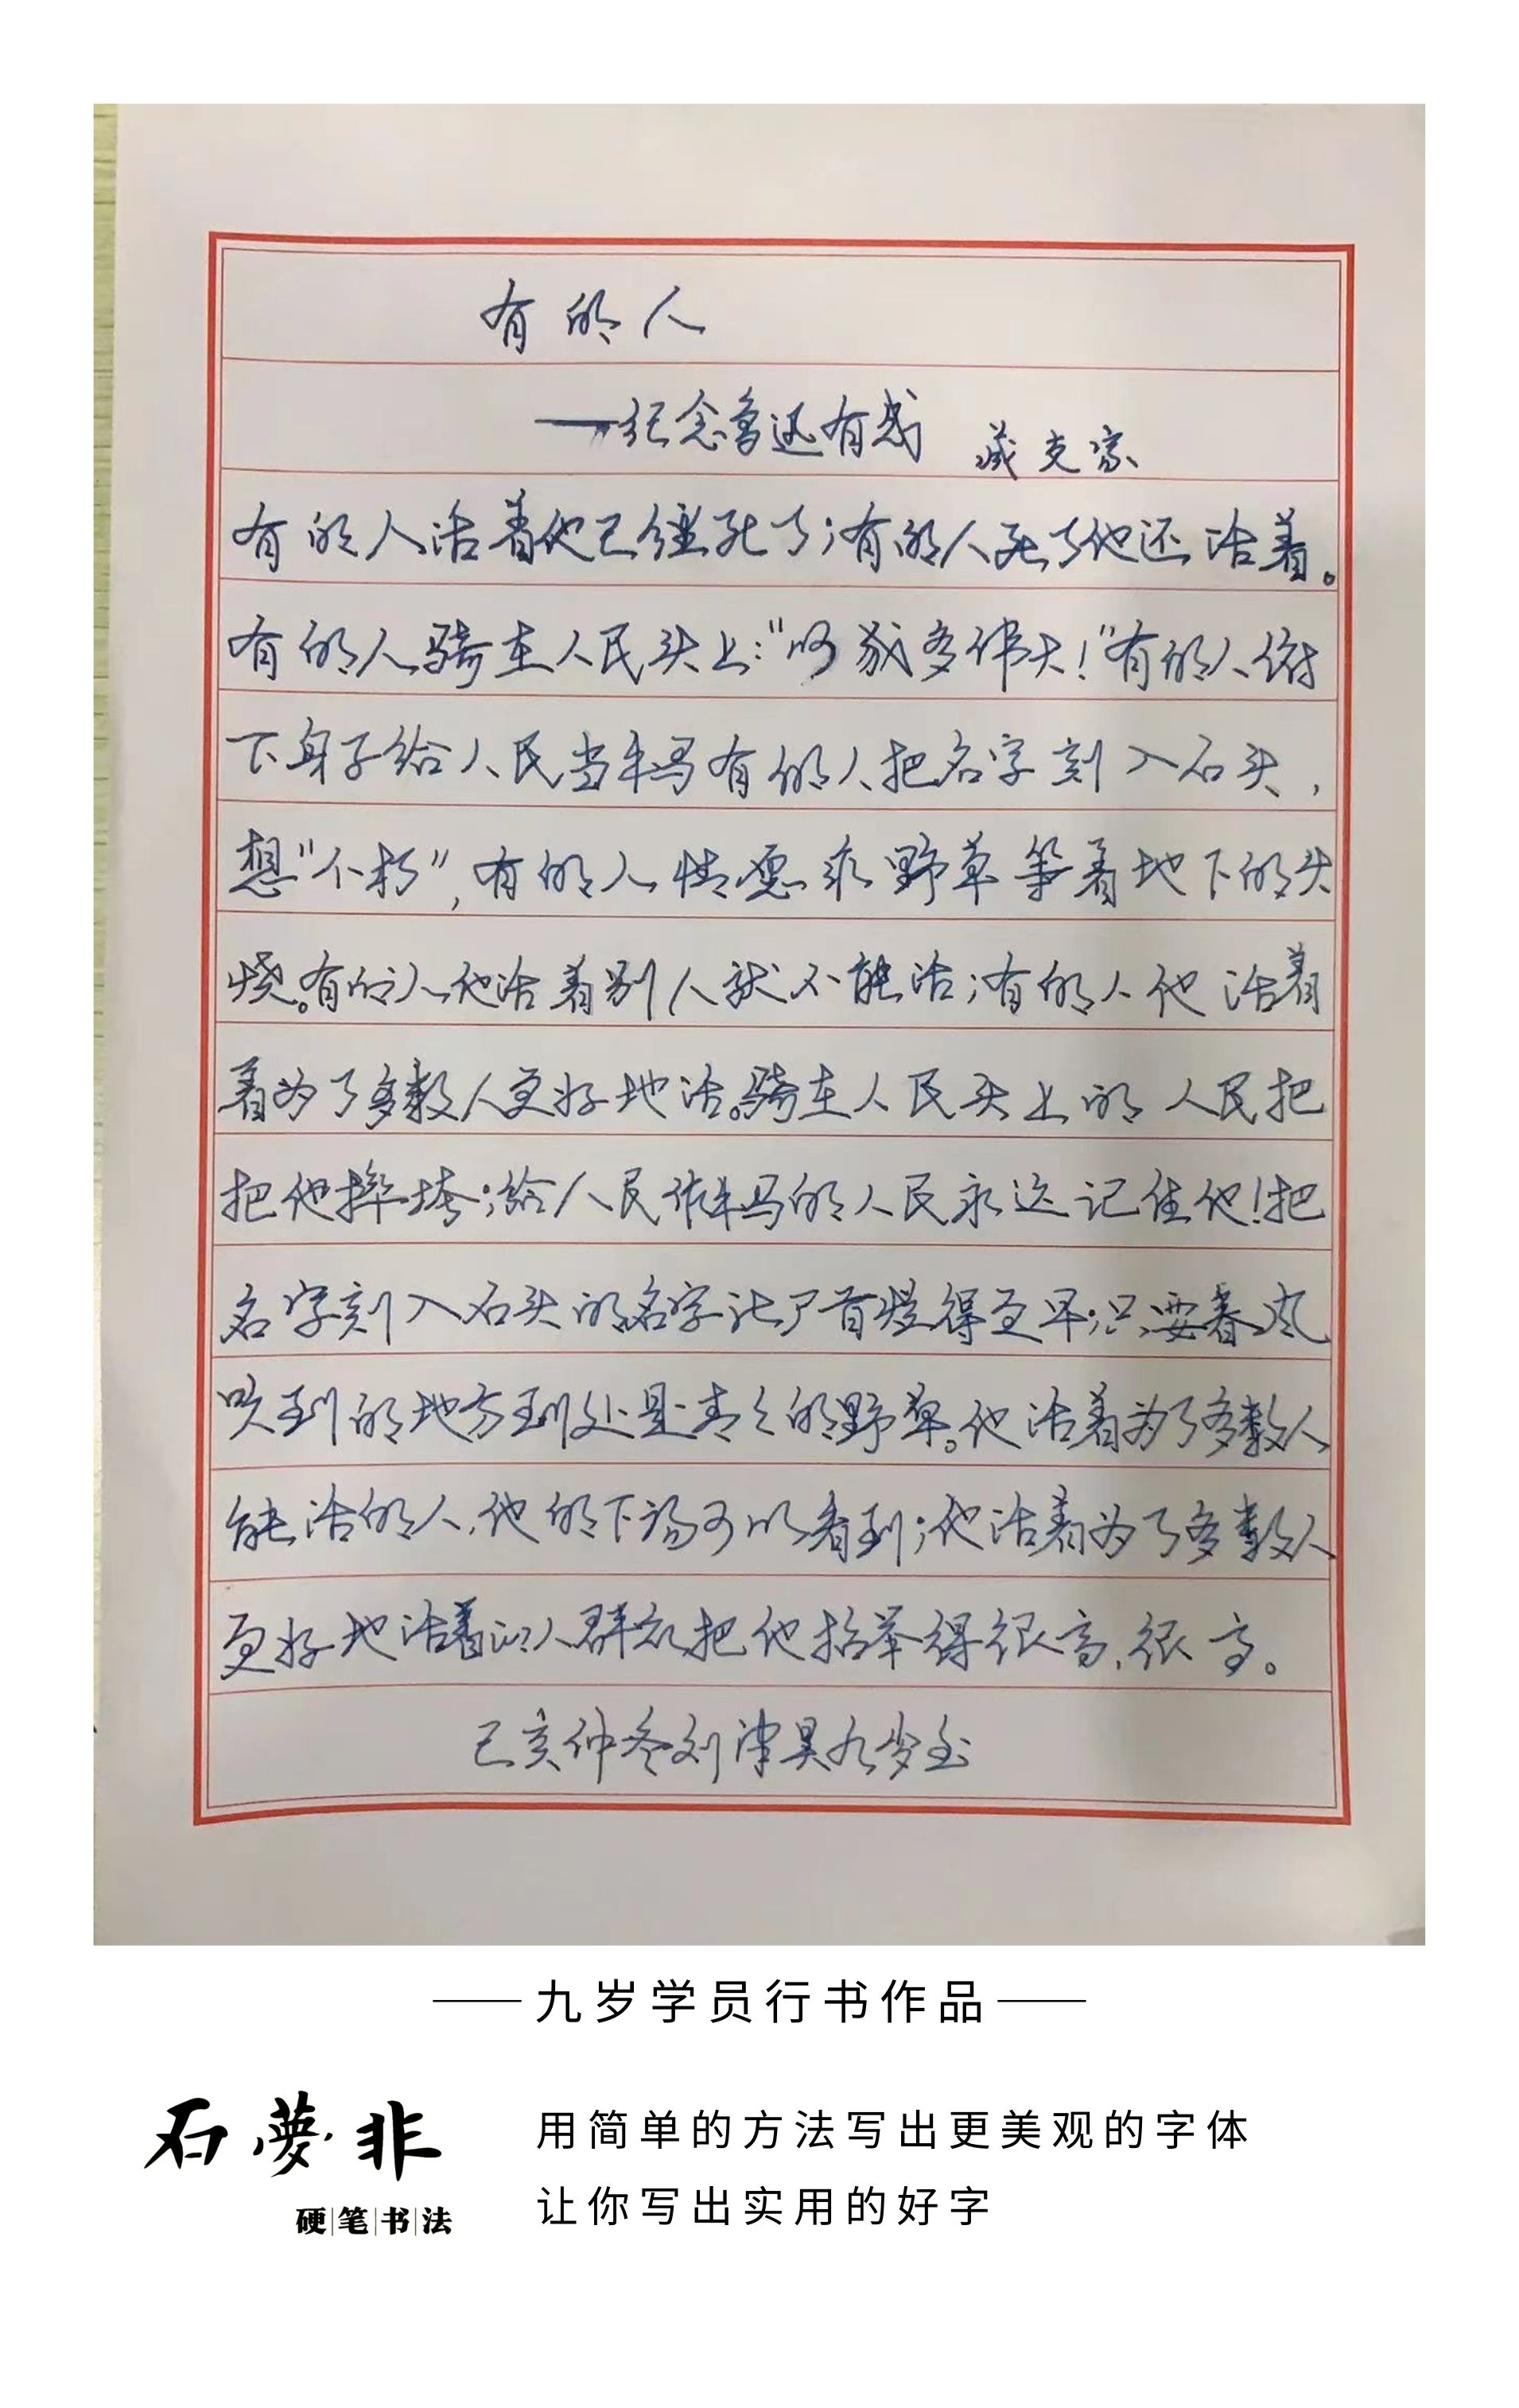 有的人
——纪念鲁迅有感 臧克家
有的人活着他已经死了;有的人死了他还活着。
有的人骑在人民头上:"呵我多伟大!"有的人俯
下身子给人民当牛马有的人把名字刻入石头,
想"不朽",有的人情愿作野草等着地下的火
烧。有的人他活着别人就不能活;有的人他活着
着为了多数人更好地活。骑在人民头上的人民把
把他摔垮;给人民作牛马的人民永远记住他!把
名字刻入石头的名字比尸首烂得更早;只要春风
吹到的地方到处是青青的野草。他活着为了多数人
能活的人,他的下场可以看到;他活着为了多数人
更好地活着的人群众把他抬举得很高,很高。
己亥仲冬刘津昊九岁书
九岁学员行书作品
石夢非
硬笔书法
用简单的方法写出更美观的字体
让你写出实用的好字